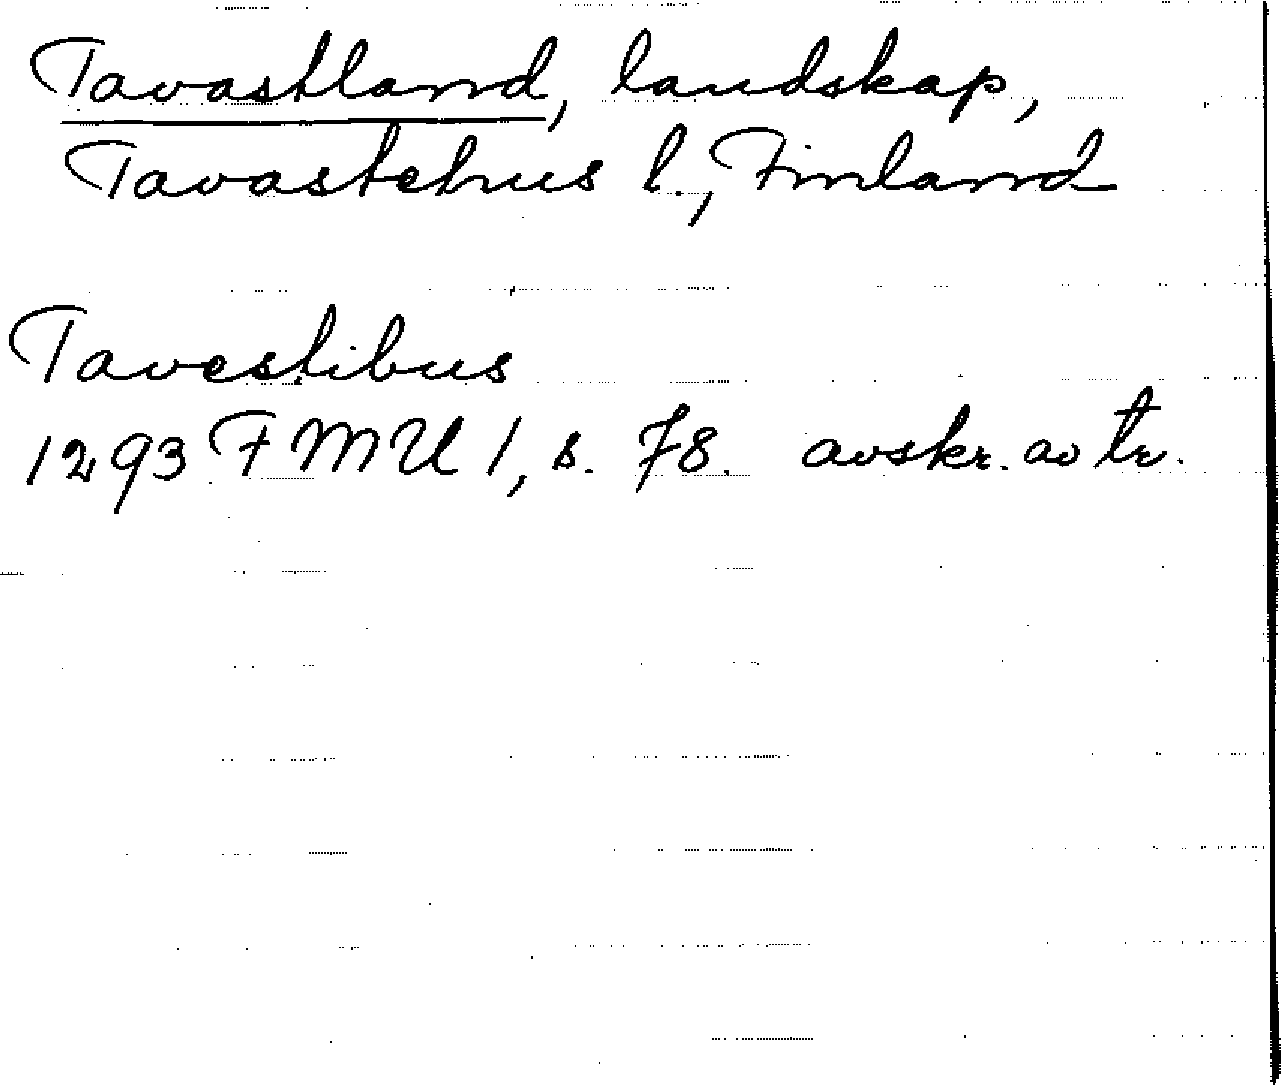 Tavastland, landskap,
Tavastehus l., Finland
Tavestibus
1293 FMU 1, s. 78. avskr. av tr.